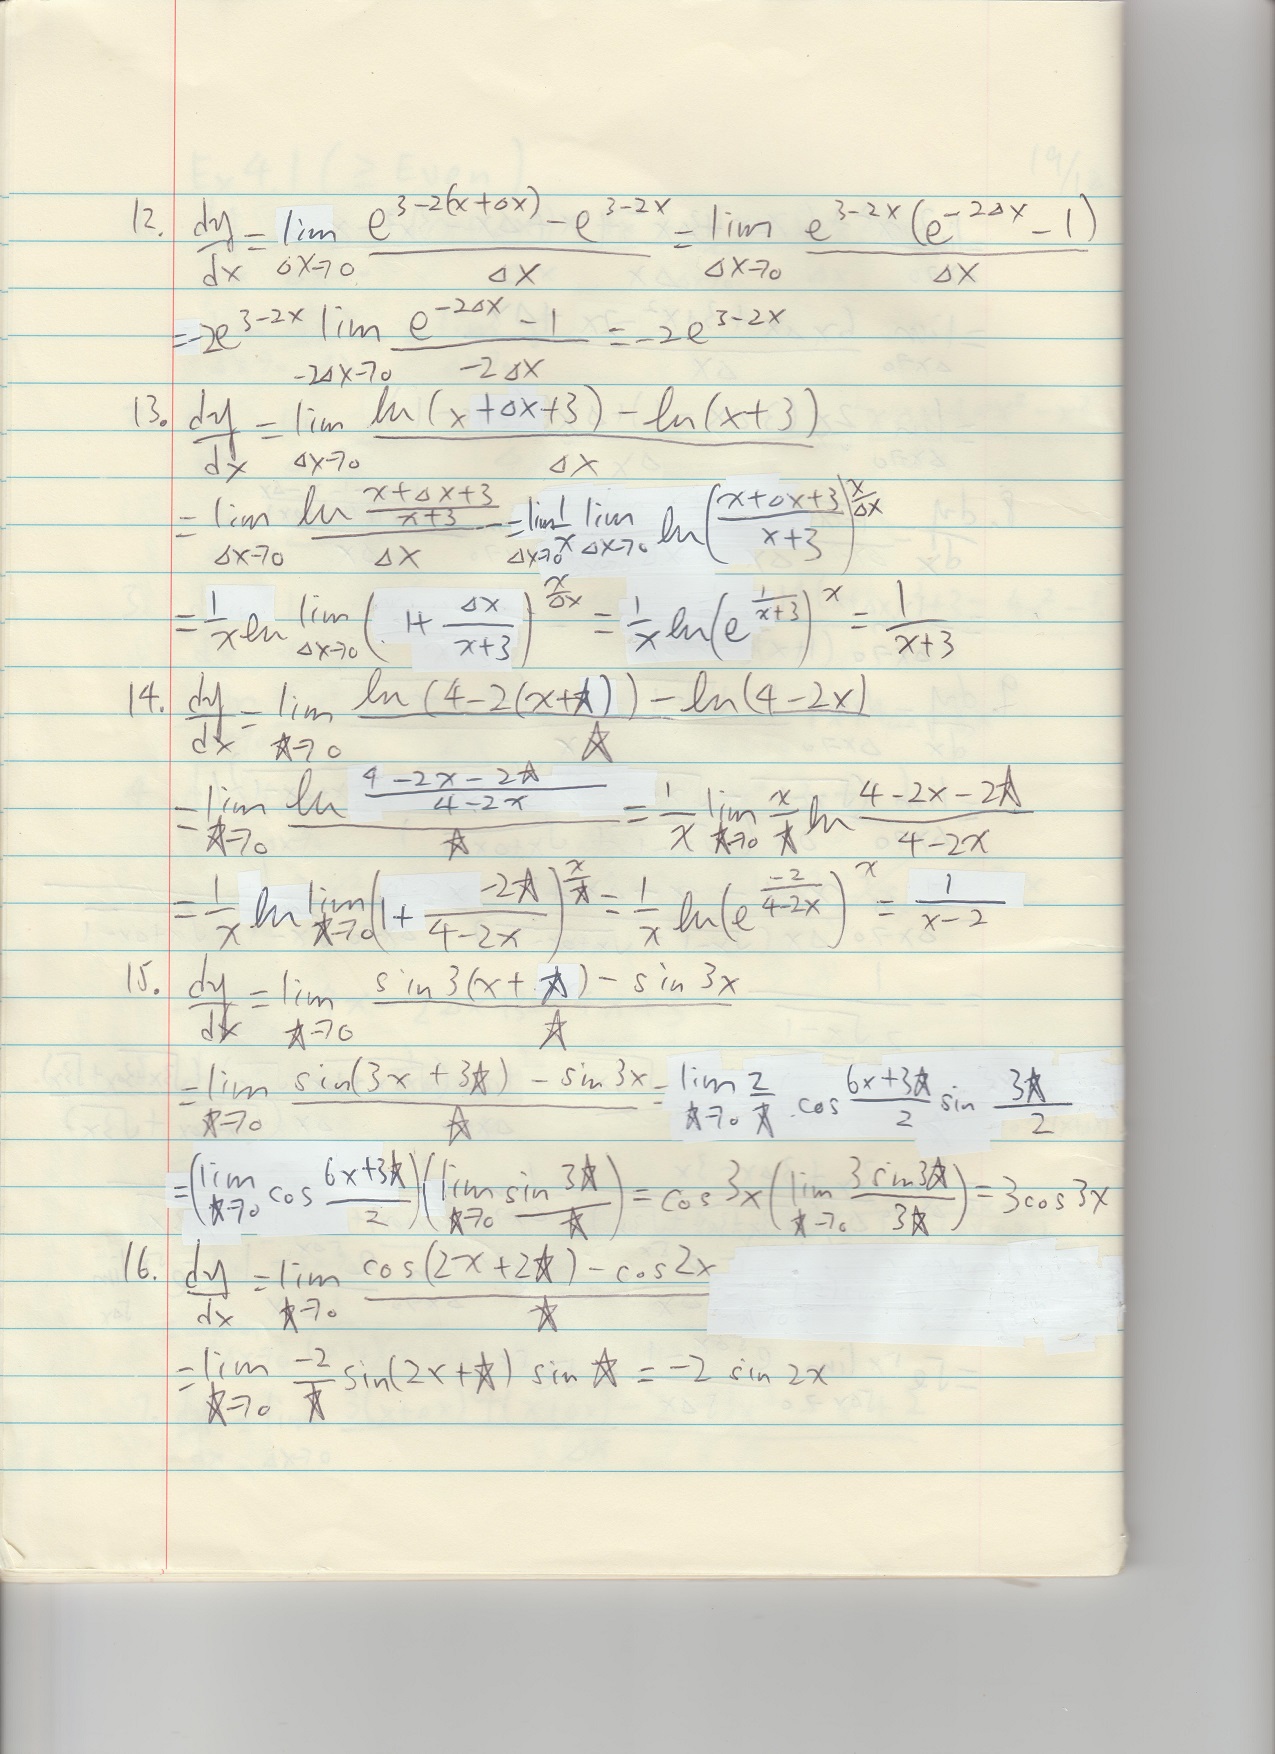 12. dy/dx = lim_{Δx→0} (e^{3-2(x+Δx)} - e^{3-2x})/Δx = lim_{Δx→0} (e^{3-2x}(e^{-2Δx} - 1))/Δx
= -2e^{3-2x} lim_{-2Δx→0} (e^{-2Δx} - 1)/(-2Δx) = -2e^{3-2x}
13. dy/dx = lim_{Δx→0} (ln(x+Δx+3) - ln(x+3))/Δx
= lim_{Δx→0} (ln (x+Δx+3)/(x+3))/Δx = lim_{Δx→0} 1/x lim_{Δx→0} ln((x+Δx+3)/(x+3))^{x/Δx}
= 1/x ln lim_{Δx→0} (1 + Δx/(x+3))^{x/Δx} = 1/x ln(e^{1/(x+3)})^x = 1/(x+3)
14. dy/dx = lim_{☆→0} (ln(4-2(x+☆)) - ln(4-2x))/☆
= lim_{☆→0} (ln (4-2x-2☆)/(4-2x))/☆ = 1/x lim_{☆→0} x/☆ ln (4-2x-2☆)/(4-2x)
= 1/x ln lim_{☆→0} (1 + (-2☆)/(4-2x))^{x/☆} = 1/x ln(e^{-2/(4-2x)})^x = 1/(x-2)
15. dy/dx = lim_{☆→0} (sin 3(x+☆) - sin 3x)/☆
= lim_{☆→0} (sin(3x+3☆) - sin 3x)/☆ = lim_{☆→0} 2/☆ cos (6x+3☆)/2 sin 3☆/2
= (lim_{☆→0} cos (6x+3☆)/2)(lim_{☆→0} sin 3☆/☆) = cos 3x (lim_{☆→0} (3 sin 3☆)/(3☆)) = 3cos 3x
16. dy/dx = lim_{☆→0} (cos(2x+2☆) - cos 2x)/☆
= lim_{☆→0} -2/☆ sin(2x+☆) sin ☆ = -2 sin 2x